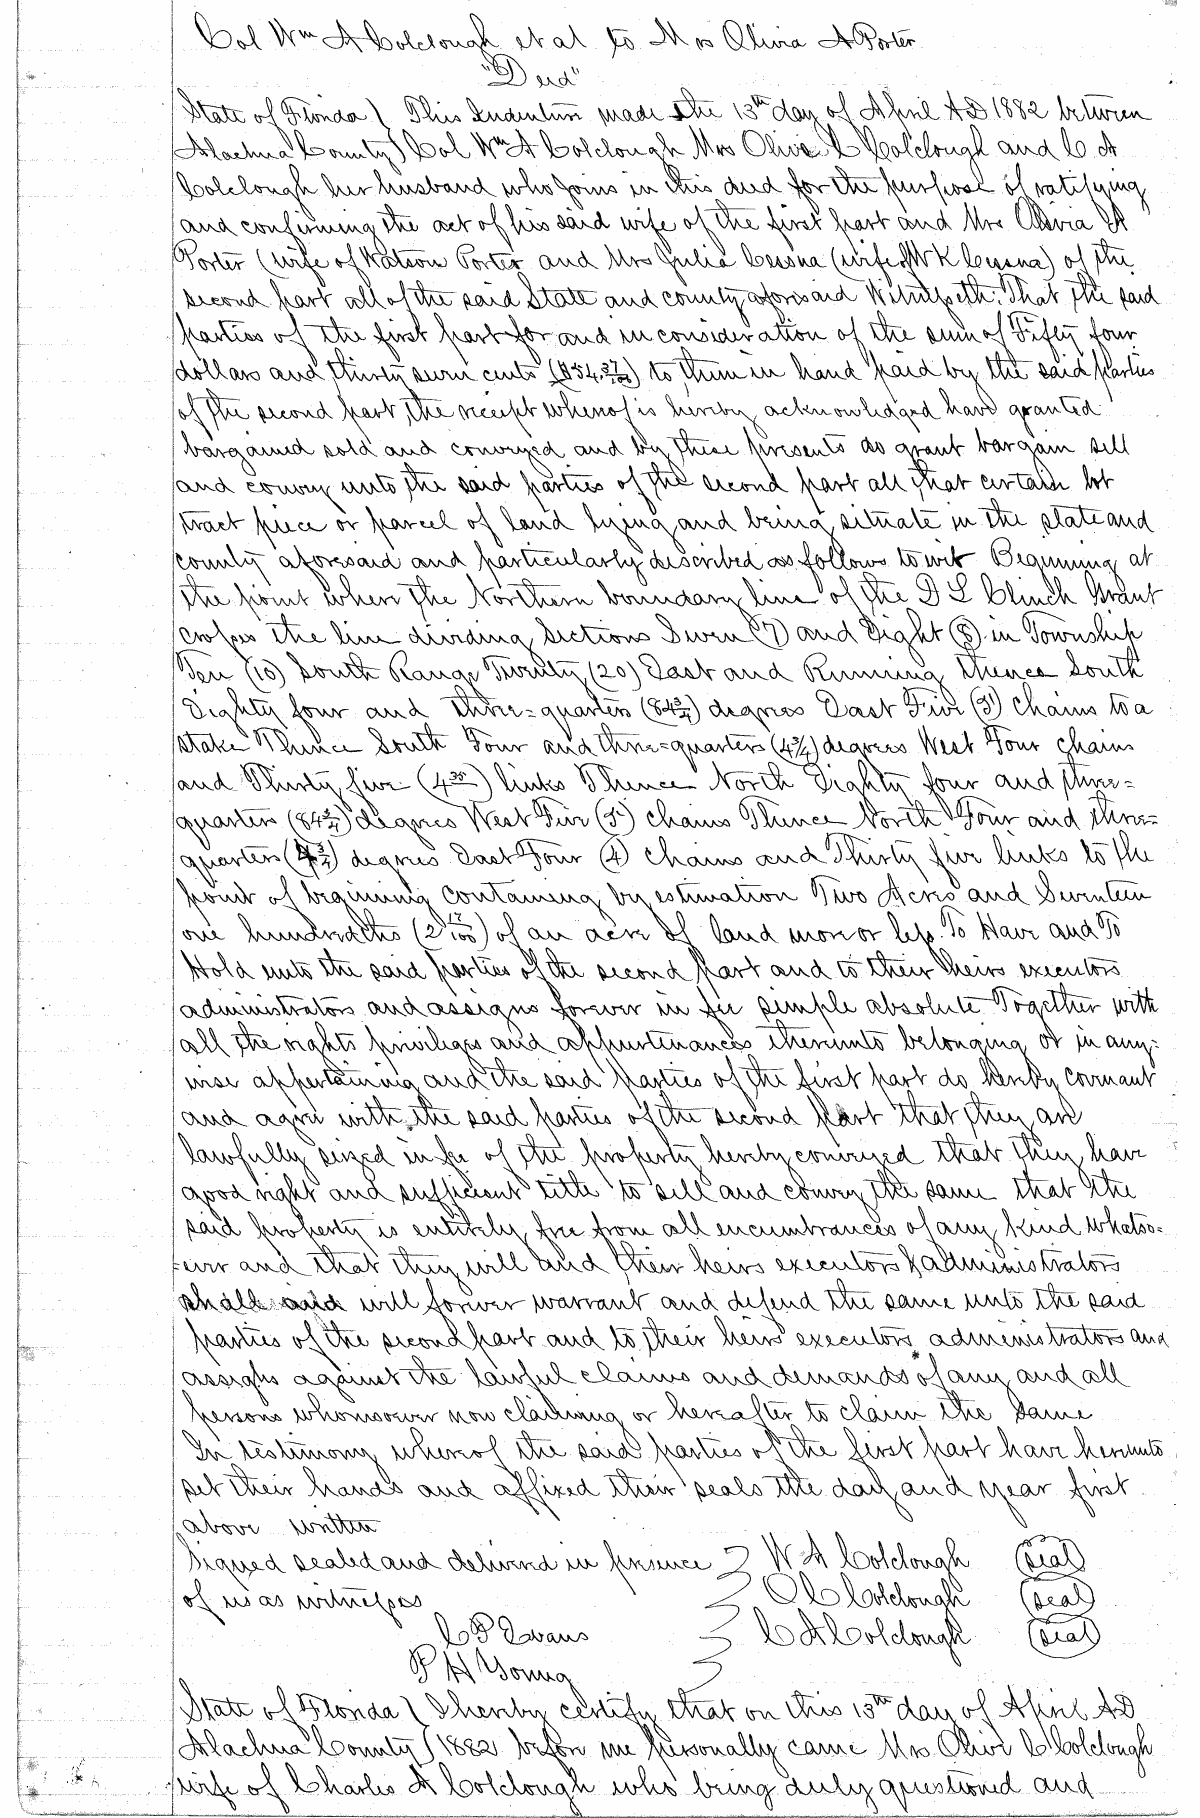 Col Wm A Colclough et al to Mrs Olivia A Porter
"Deed"
State of Florida ) This Indenture made the 13th day of April AD 1882 between
Alachua County ) Col Wm A Colclough Mrs Olive C Colclough and C A
Colclough her husband who joins in this deed for the purpose of ratifying
and confirming the act of his said wife of the first part and Mrs Olivia A
Porter (wife of Watson Porter and Mrs Julia Cessna (wife of W K Cessna) of the
second part all of the said State and county aforesaid Witnesseth: That the said
parties of the first part for and in consideration of the sum of Fifty four
dollars and thirty seven cents ($54.37/100) to them in hand paid by the said parties
of the second part the receipt whereof is hereby acknowledged have granted
bargained sold and conveyed and by these presents do grant bargain sell
and convey unto the said parties of the second part all that certain lot
tract piece or parcel of land lying and being situate in the state and
county aforesaid and particularly described as follows to wit Beginning at
the point where the Northern boundary line of the D L Clinch Grant
crosses the line dividing Sections Seven (7) and Eight (8) in Township
Ten (10) South Range Twenty (20) East and Running thence South
Eighty four and three=quarters (84 3/4) degrees East Five (5) chains to a
stake Thence South Four and three=quarters (4 3/4) degrees West Four chains
and Thirty five (4 35) links Thence North Eighty four and three=
quarters (84 3/4) degrees West Five (5) chains Thence North Four and three=
quarters (4 3/4) degrees East Four (4) chains and Thirty five links to the
point of begining containing by estimation Two Acres and Seventeen
one hundredths (2 17/100) of an acre of land more or less. To Have and To
Hold unto the said parties of the second part and to their heirs executors
administrators and assigns forever in fee simple absolute Together with
all the rights privileges and appurtenances thereunto belonging or in any=
wise appertaining and the said parties of the first part do hereby covenant
and agree with the said parties of the second part that they are
lawfully seized in fee of the property hereby conveyed that they have
good right and sufficient title to sell and convey the same that the
said property is entirely free from all encumbrances of any kind whatso=
=ever and that they will and their heirs executors & administrators
shall and will forever warrant and defend the same unto the said
parties of the second part and to their heirs executors administrators and
assigns against the lawful claims and demands of any and all
persons whomsoever now claiming or hereafter to claim the same
In testimony whereof the said parties of the first part have hereunto
set their hands and affixed their seals the day and year first
above written
Signed sealed and delivered in presence W A Colclough (seal)
of us as witnesses O C Colclough (seal)
C P Evans C A Colclough (seal)
P H Young
State of Florida ( I hereby certify that on this 13th day of April AD
Alachua County ) 1882 before me personally came Mrs Olive C Colclough
wife of Charles A Colclough who being duly questioned and